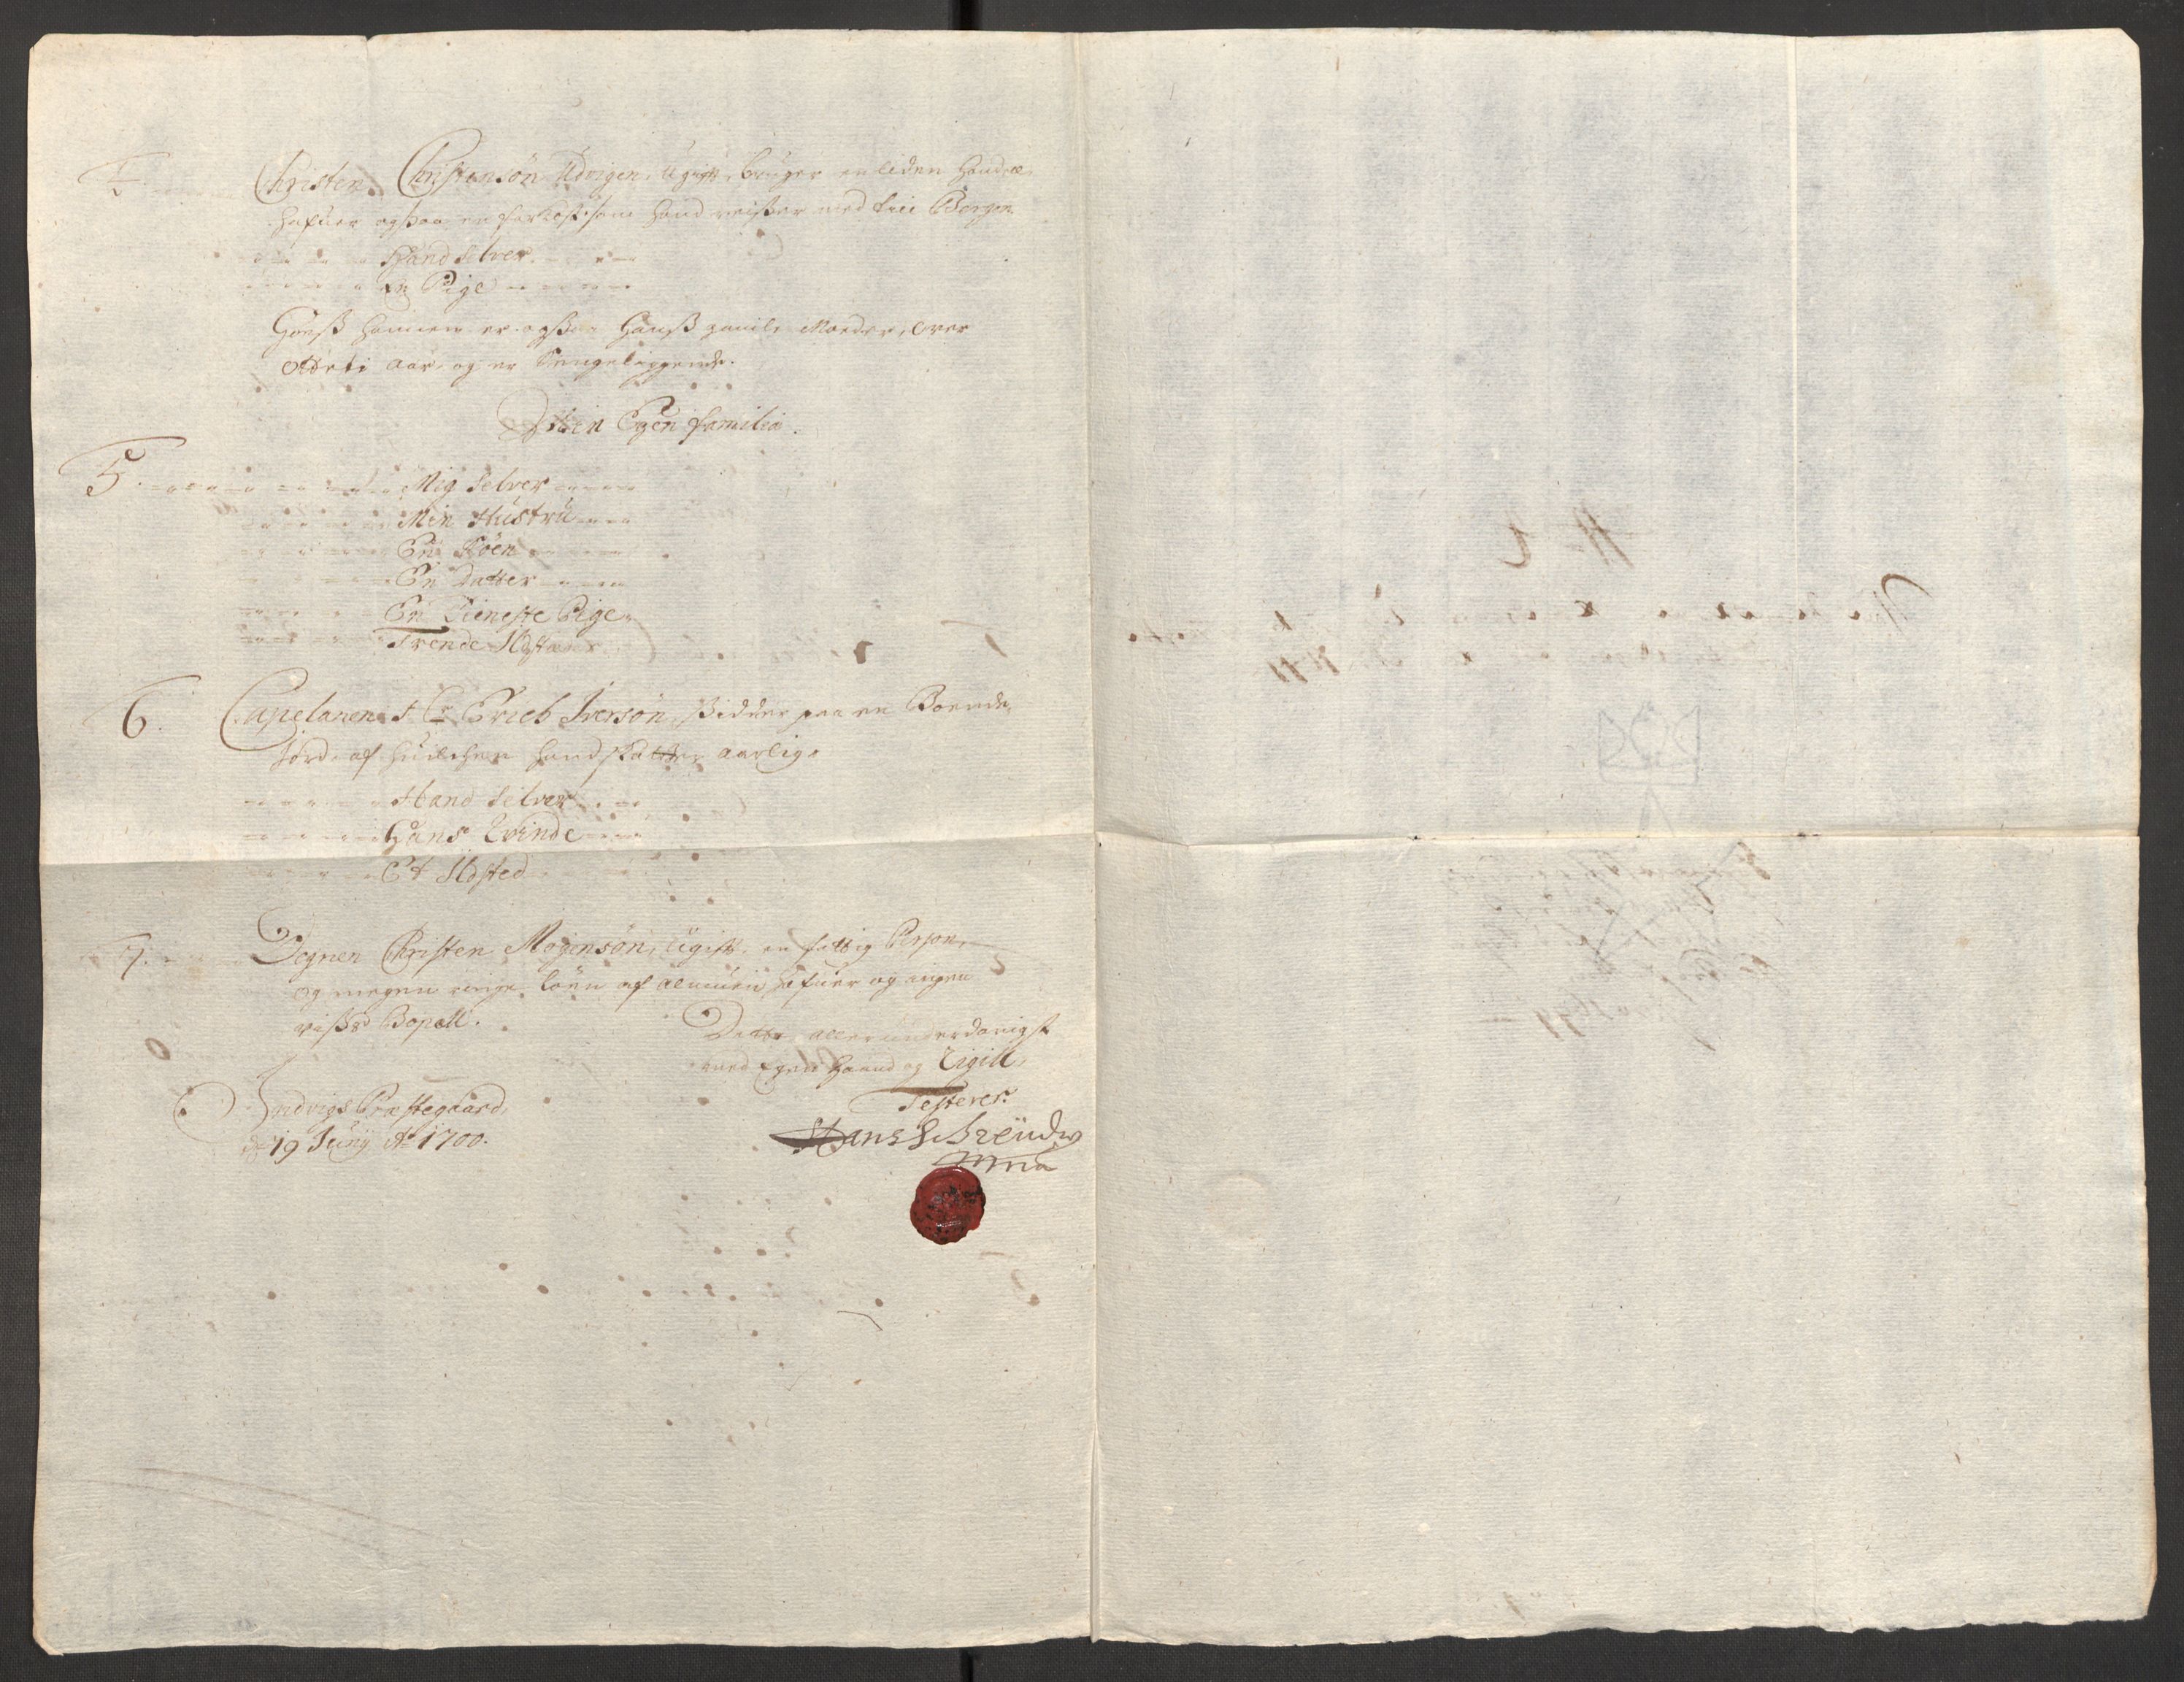 4. Christen Christensön Udvigen, Ugift, bruger en liden Handel,
hafuer ogsaa en farkost som hand reisser med till Bergen
Hand Selver
En Pige
Hoess hannem er ogsaa Hanss gamle Moeder, over
otteti aar, og er Sengeliggende.
Min Egen familia.
5. Mig Selver
Min Hustru
En Söen
En Datter
En Tieneste Pige
Trende
6. Capelanen Hr Erich Iversön, Sidder paa en Boende
Jord, af huilchen hand skatter aarlig.
Hand Selver
Hans Qvinde
Et
7. Degnen Christen Mogensön, Ugift, en fattig Person,
og megen ringe löen af almuen hafuer og ingen
visse Bopæll.
Dette allerunderdanigst
med Egen Haand og Zigill
Testerer.
Indvigs Præstegaard,
d. 19 Junij Ao 1700.
Hans Schreüder
Mpria